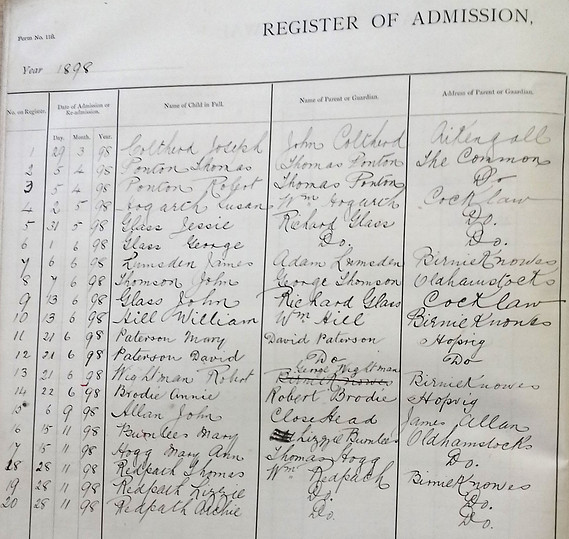 REGISTER OF ADMISSION,
Form No. 118.
Year 1898
No. on Register. Date of Admission or Re-admission. Name of Child in Full. Name of Parent or Guardian. Address of Parent or Guardian.
Day. Month. Year.
1 29 3 98 Coltherd Joseph John Coltherd Aikengall
2 5 4 98 Ponton Thomas Thomas Ponton The Common
3 5 4 98 Ponton Robert Thomas Ponton Do
4 2 5 98 Hogarth Susan Wm Hogarth Cocklaw
5 31 5 98 Glass Jessie Richard Glass Do.
6 1 6 98 Glass George Do. Do.
7 6 6 98 Lumsden James Adam Lumsden BirnieKnowes
8 7 6 98 Thomson John George Thomson Oldhamstocks
9 13 6 98 Glass John Richard Glass Cocklaw
10 13 6 98 Hill William Wm Hill BirnieKnowes
11 21 6 98 Paterson Mary David Paterson Hoprig
12 21 6 98 Paterson David Do Do
13 21 6 98 Wightman Robert George Wightman BirnieKnowes
14 22 6 98 Brodie Annie Robert Brodie Hoprig
15 6 9 98 Allan John CloseHead James Allan
16 15 11 98 Burnlees Mary Lizzie Burnlees Oldhamstocks
17 15 11 98 Hogg Mary Ann Thomas Hogg Do.
18 28 11 98 Redpath Thomas Wm Redpath BirnieKnowes
19 28 11 98 Redpath Lizzie Do. Do.
20 28 11 98 Redpath Archie Do. Do.